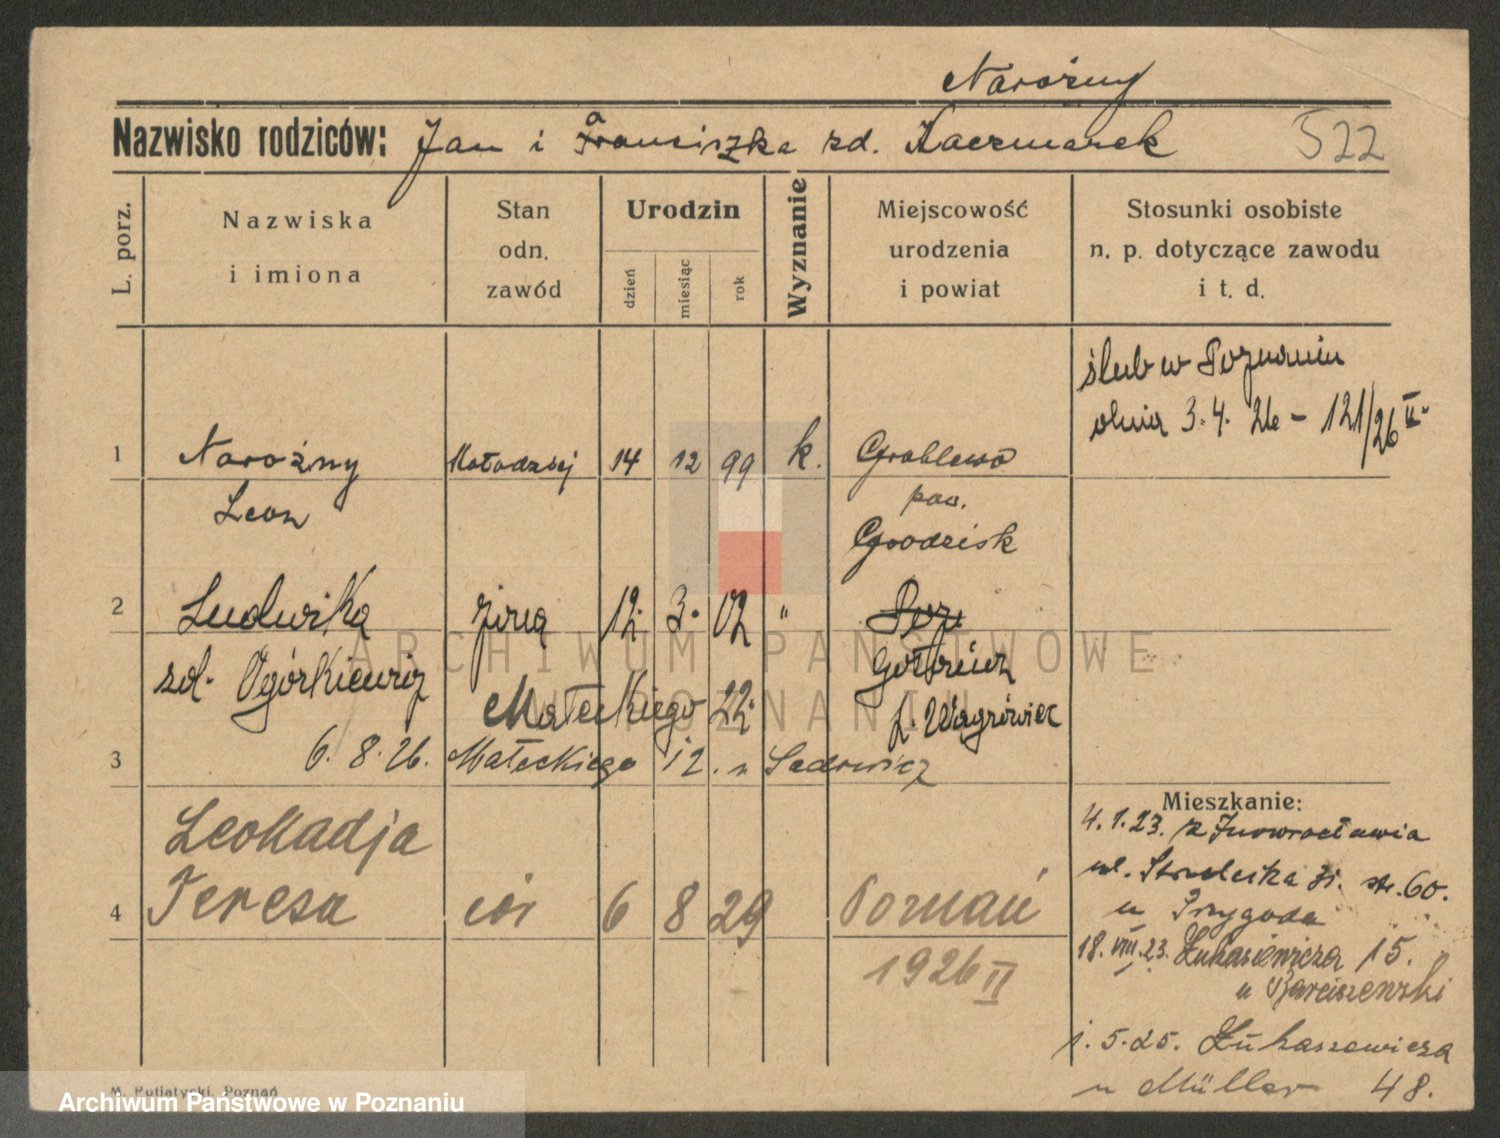 Narożny
Nazwisko rodziców: Jan i Franciszka zd. Kaczmarek 522
L. porz.
Nazwiska
i imiona
Stan
odn.
zawód
Urodzin
dzień
miesiąc
rok
Wyznanie
Miejscowość
urodzenia
i powiat
Stosunki osobiste
n. p. dotyczące zawodu
i t. d.
ślub w Poznaniu
dnia 3.4.26 – 121/26 II
1 Narożny 14 12 99 k. Grablewo
Leon pow.
Grodzisk
2 Ludwika żona 12. 3. 02 " Poz.
zd. Ogórkiewicz
Małeckiego 22. p. Wągrówiec
3 6.8.26. Małeckiego 12. u
Leokadja
4 Teresa cór 6 8 29 Poznań
1926 II
Mieszkanie:
4.1.23. z Inowrocławia
ul. Strzelecka str. 60.
u Przygoda
18.VIII.23. Łukasiewicza 15.
u
1.5.25. Łukaszewicza
u Müller 48.
M. Putiatycki, Poznań
ARCHIWUM PAŃSTWOWE
W POZNANIU
Archiwum Państwowe w Poznaniu